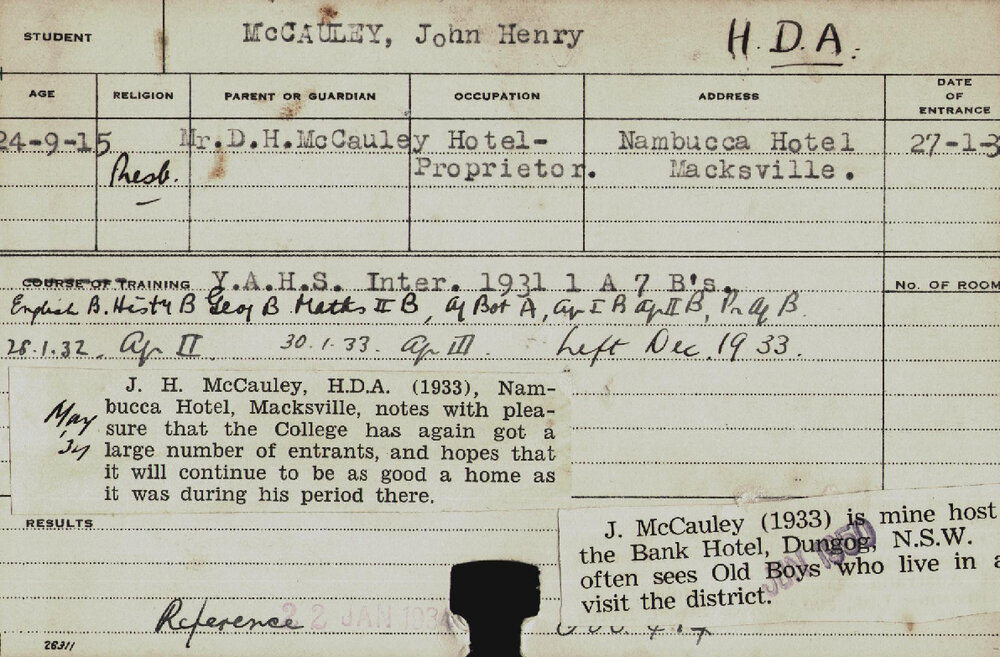 STUDENT McCAULEY, John Henry H.D.A.
AGE RELIGION PARENT OR GUARDIAN OCCUPATION ADDRESS DATE OF ENTRANCE
24-9-15 Mr.D.H.McCauley Hotel- Nambucca Hotel 27-1-3
Presb. Proprietor. Macksville.
COURSE OF TRAINING Y.A.H.S. Inter. 1931 1 A 7 B's. No. OF ROOM
English B. Hist y B Geog B Maths II B, Ag Bot A, Ag I B Ag II B, Pr Ag B.
28.1.32. Ag II. 30.1.33. Ag III. Left Dec. 1933.
J. H. McCauley, H.D.A. (1933), Nam-
bucca Hotel, Macksville, notes with plea-
sure that the College has again got a
large number of entrants, and hopes that
it will continue to be as good a home as
it was during his period there.
May
34
RESULTS
J. McCauley (1933) is mine host
the Bank Hotel, Dungog, N.S.W.
often sees Old Boys who live in a
visit the district.
JUN 1950
Reference 22 JAN 1934
26311